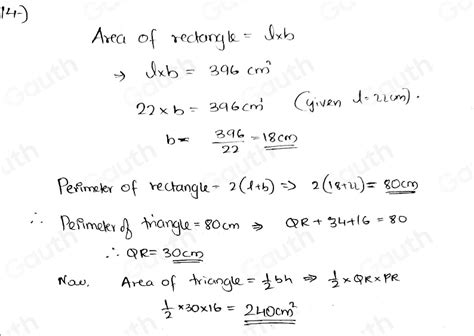 14-)
Area of rectangle = l×b
→ l×b = 396 cm²
22 × b = 396cm² (given l = 22cm).
b = 396/22 = 18cm
Perimeter of rectangle = 2(l+b) => 2(18+22) = 80cm
∴ Perimeter of triangle = 80cm ⇒ QR + 34+16 = 80
∴ QR = 30cm
Now, Area of triangle = ½bh ⇒ ½ × QR × PR
½ × 30×16 = 240cm²